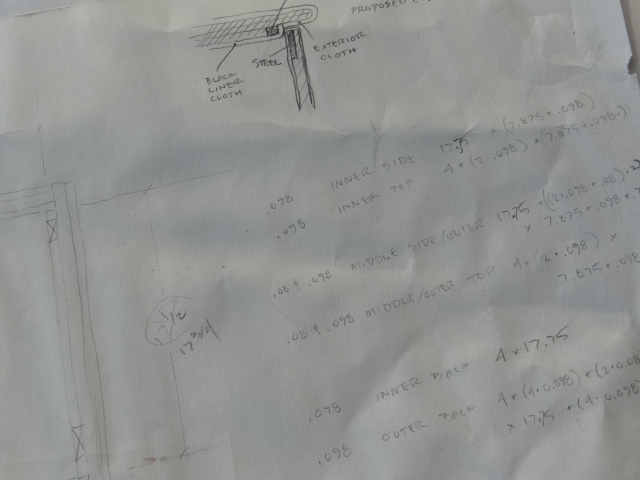 PROPOSED
STEEL
EXTERIOR
CLOTH
BLACK
LINER
CLOTH
.098 INNER SIDE 17.75 × (7.875 + .098)
.098 INNER TOP 4 + (2·.098) × (7.875 + .098)
.08 & .098 MIDDLE SIDE/OUTER 17.75 + (2·.098 + .08)
× 7.875 + .098 +
.08 & .098 MIDDLE/OUTER TOP 4 + (2 · .098) ×
7.875 + .098
17 3/4
.098 INNER BACK 4 × 17.75
.098 OUTER BACK 4 + (4·0.098) + (2·0.08
× 17.75 + (4·0.098)